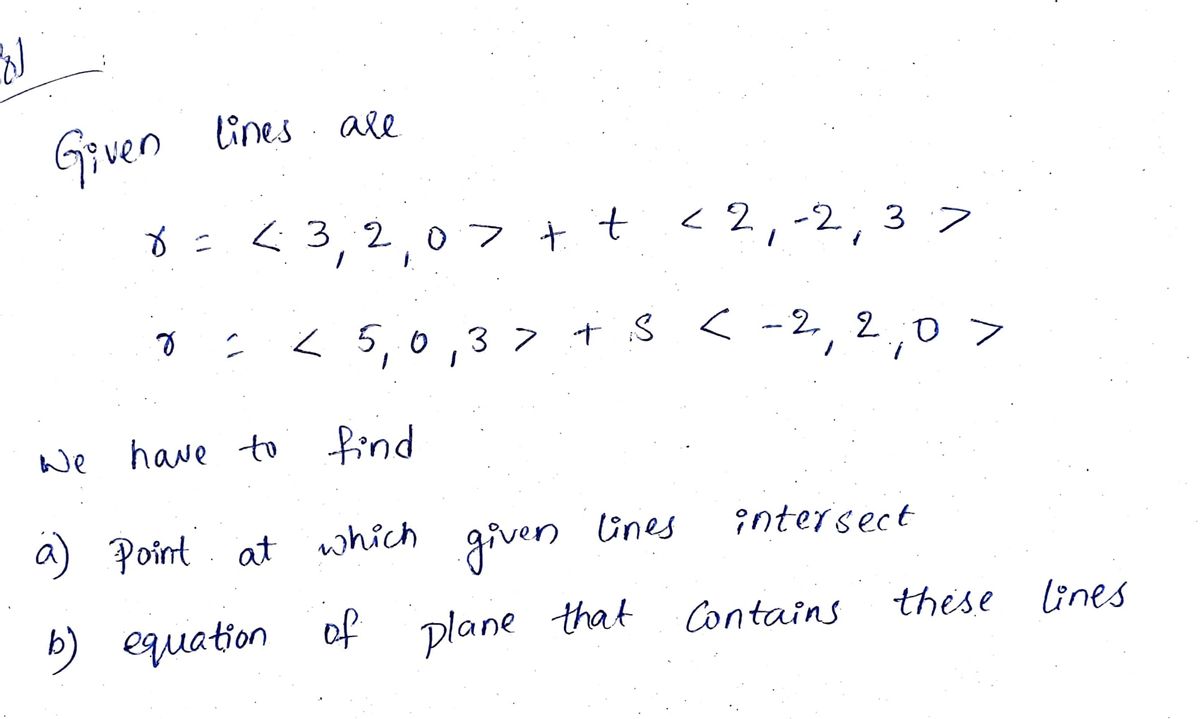 8)
Given lines are
r = < 3, 2, 0 > + t < 2, -2, 3 >
r = < 5, 0, 3 > + s < -2, 2, 0 >
We have to find
a) Point at which given lines intersect
b) equation of plane that Contains these lines